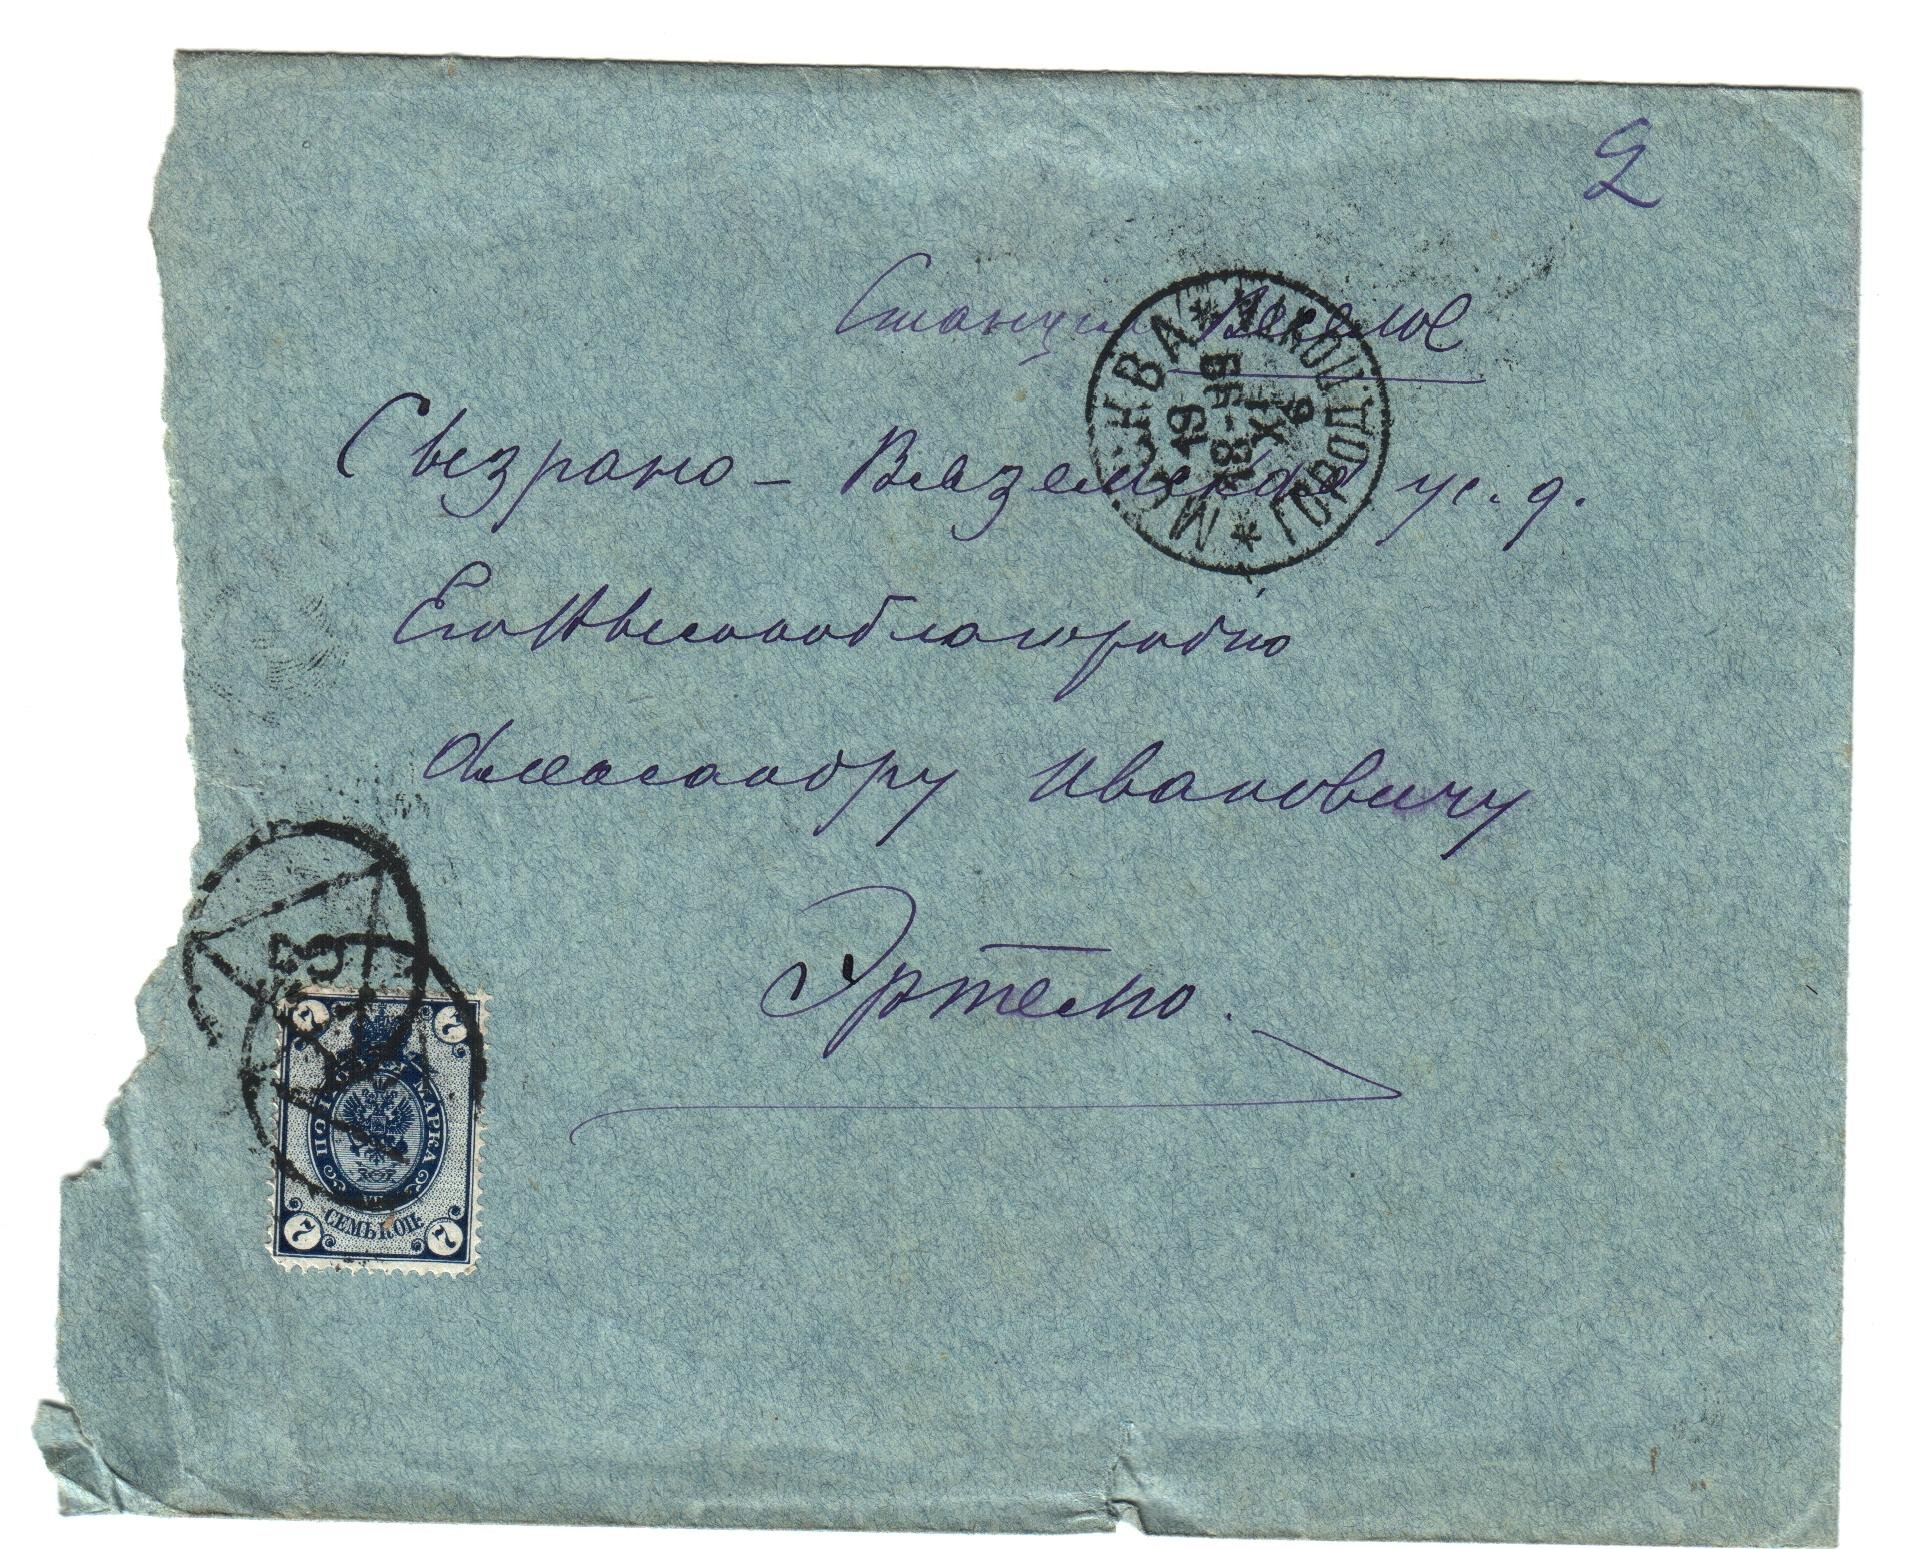 2
Станція Веселое
Сызрано-Вяземской ж. д.
Его Высокоблагородію
Александру Ивановичу
Эртелю.
МОСКВА
19
18-99
XI
6
ГОРОД.
7 7
ПОЧТОВАЯ МАРКА
СЕМЬ КОП.
7 7